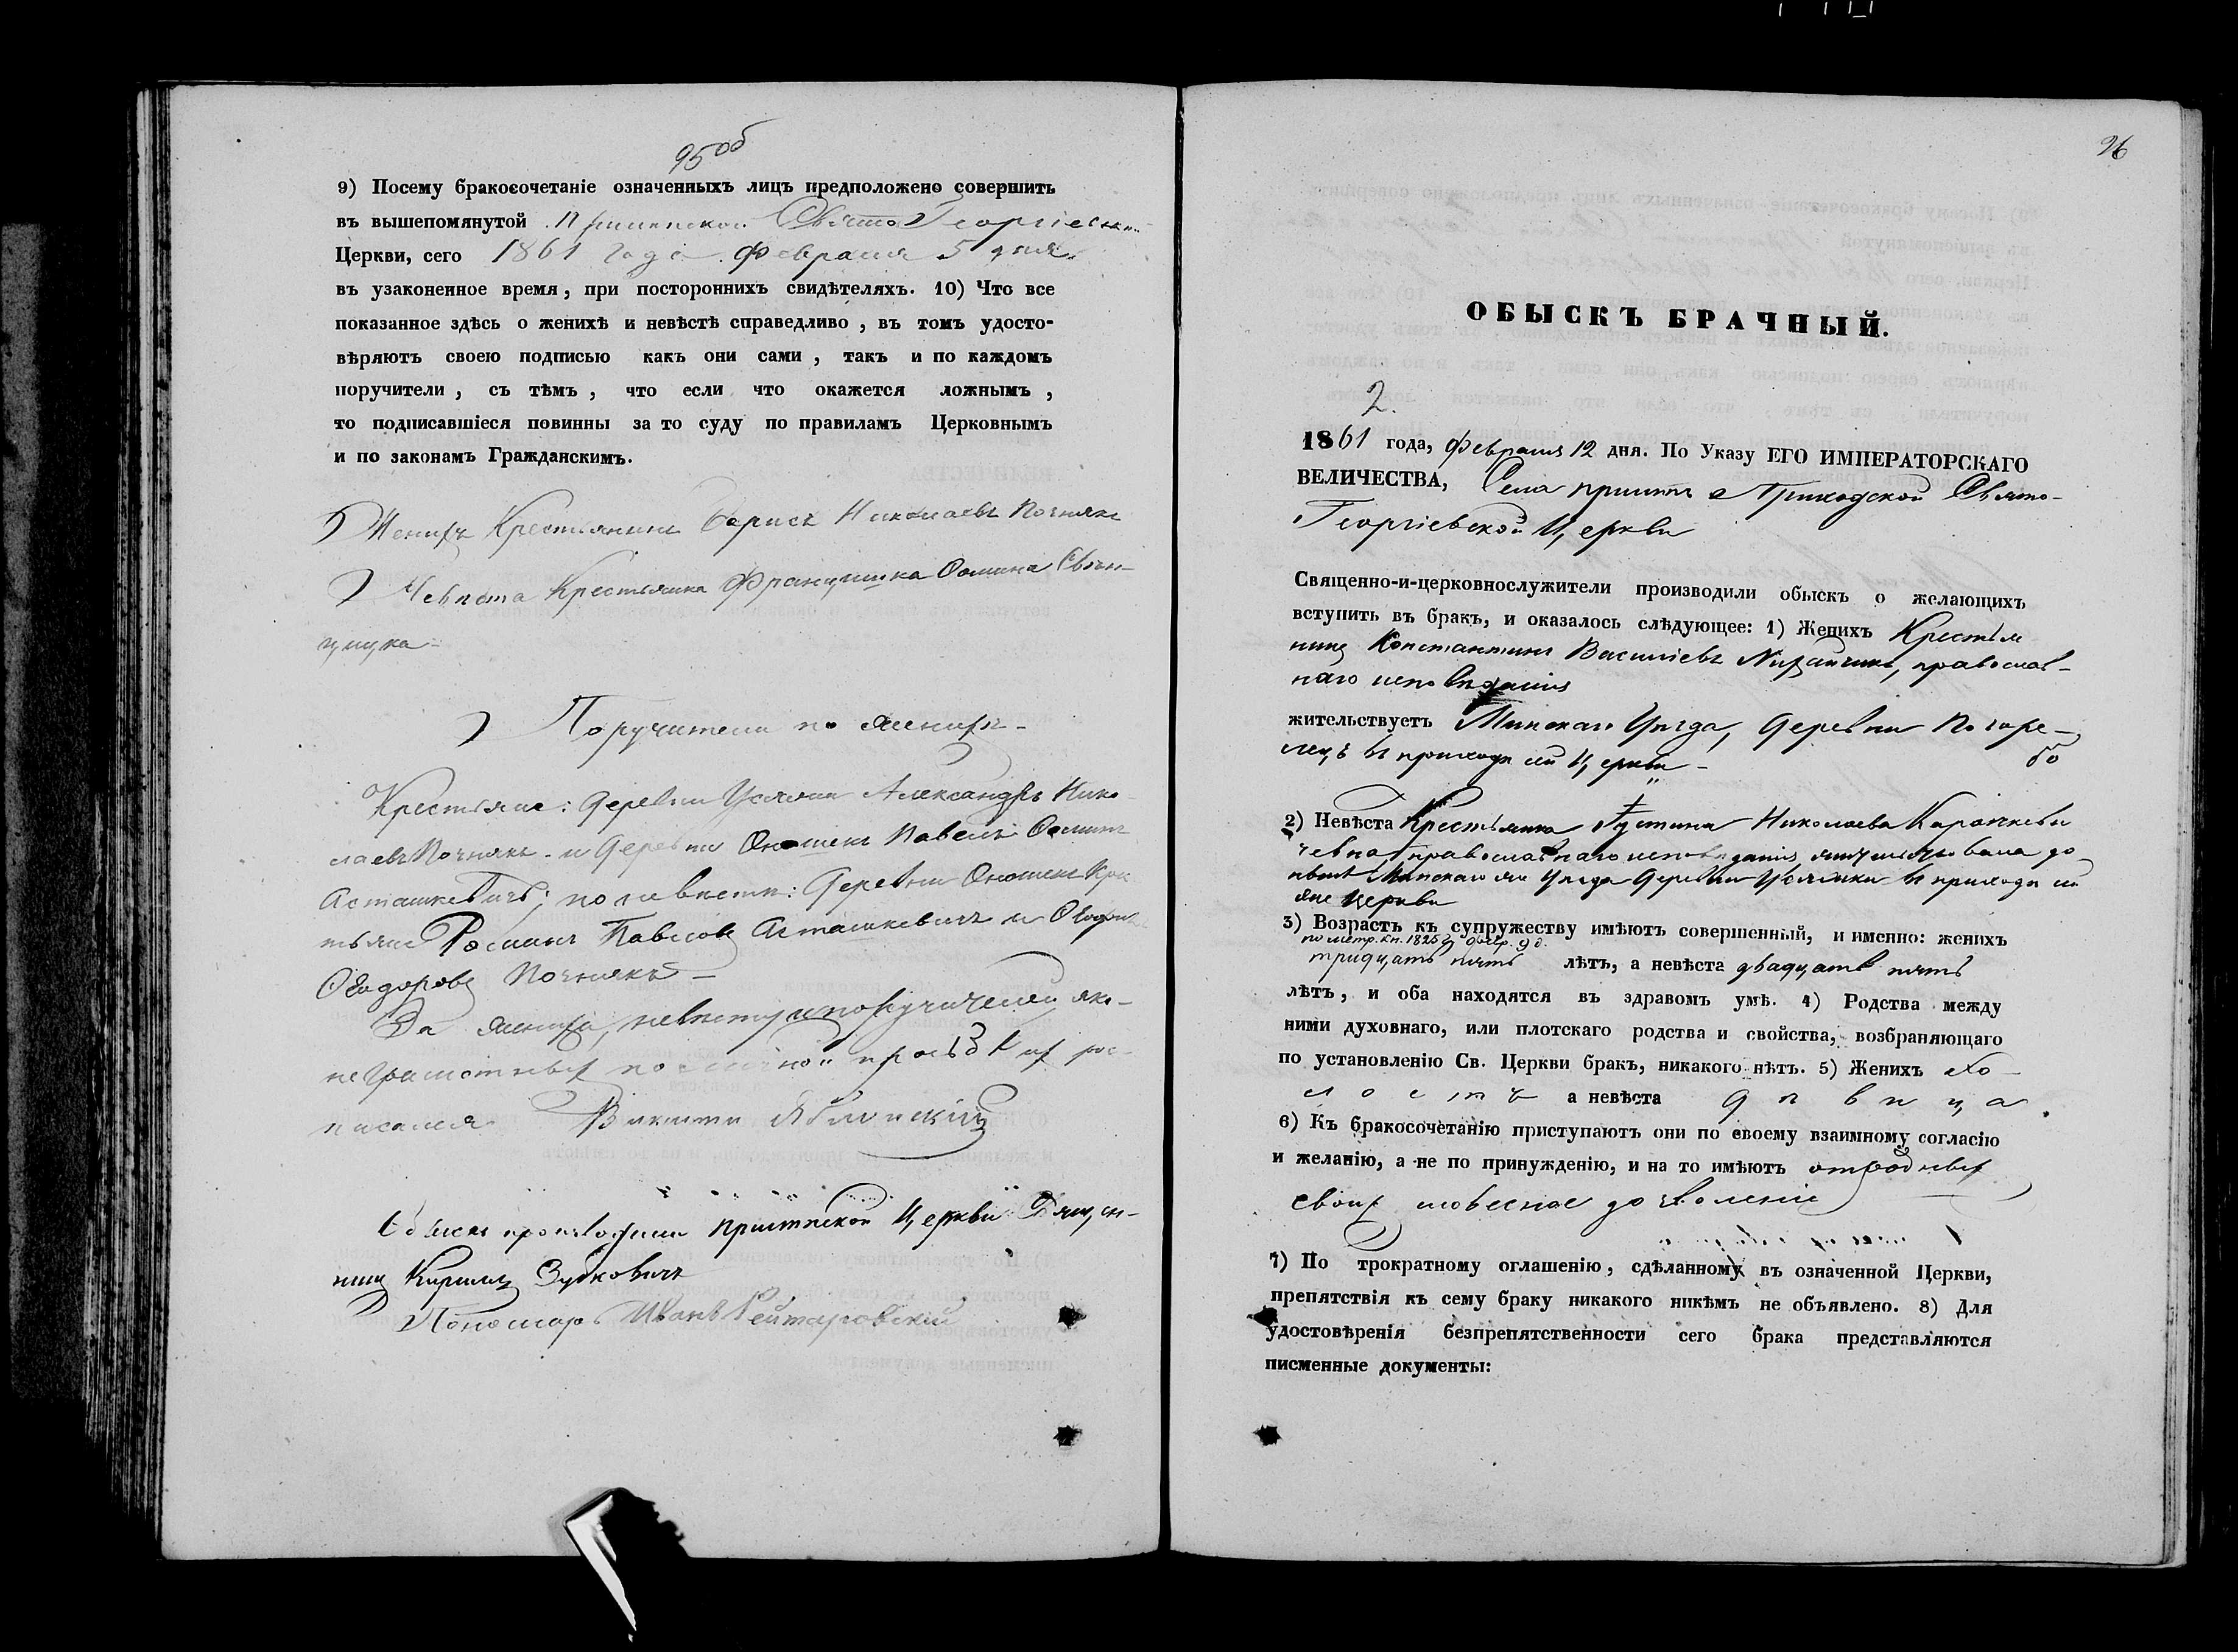 95об
9) Посему бракосочетаніе означенныхъ лицъ предположено совершить
въ вышепомянутой Свято Георгіевской
Церкви, сего 1861 года Февраля 5 дня
въ узаконенное время, при постороннихъ свидѣтеляхъ. 10) Что все
показанное здѣсь о женихѣ и невѣстѣ справедливо, въ томъ удосто-
вѣряютъ своею подписью какъ они сами, такъ и по каждомъ
поручители, съ тѣмъ, что если что окажется ложнымъ,
то подписавшіеся повинны за то суду по правиламъ Церковнымъ
и по законамъ Гражданскимъ.
Женихъ Крестьянинъ Борисъ Николаевъ Почнякъ
Невѣста Крестьянка Францишка Ѳомина
Поручители по женихѣ-
Крестьяне: Деревни Усялки Александръ Нико
лаевъ Почнякъ и Деревни Павелъ Ѳоминъ
Асташкевичъ; по невѣстѣ: Деревни Кре
стьяне Романъ Павловъ Асташкевичъ и
Ѳеодоровъ Почнякъ-
За жениха, невѣсту и поручителей яко-
неграмотныхъ по личной прозьбѣ ихъ рос-
писался Яблонскій
Обыскъ производили Церкви Священ-
никъ Кириллъ Зубковичъ
Пономарь Иванъ Рейтаровскій
96
ОБЫСКЪ БРАЧНЫЙ.
2.
1861 года, Февраля 12 дня. По Указу ЕГО ИМПЕРАТОРСКАГО
ВЕЛИЧЕСТВА, Села Приходской Свято-
Георгіевской Церкви
Священно-и-церковнослужители производили обыскъ о желающихъ
вступить въ бракъ, и оказалось слѣдующее: 1) Женихъ Крестья
нинъ Константинъ Василіевъ православ-
наго исповѣданія
жительствуетъ Минскаго Уѣзда, Деревни Погоре-
лецъ въ приходѣ сей Церкви-
2) Невѣста Крестьянка Іустина Николаева
православнаго исповѣданія жительствовала до
нынѣ Минскаго же Уѣзда Деревни Усялки въ приходѣ сей
же Церкви
3) Возрастъ къ супружеству имѣютъ совершенный, и именно: женихъ
по метр. кн. 1825 г.
тридцать пять лѣтъ, а невѣста двадцать пять
лѣтъ, и оба находятся въ здравомъ умѣ. 4) Родства между
ними духовнаго, или плотскаго родства и свойства, возбраняющаго
по установленію Св. Церкви бракъ, никакого нѣтъ. 5) Женихъ хо-
лостъ а невѣста дѣвица.
6) Къ бракосочетанію приступаютъ они по своему взаимному согласію
и желанію, а не по принужденію, и на то имѣютъ отъ родныхъ
своихъ словесное дозволеніе
7) По трократному оглашенію, сдѣланному въ означенной Церкви,
препятствія къ сему браку никакого никѣмъ не объявлено. 8) Для
удостовѣренія безпрепятственности сего брака представляются
писменные документы: